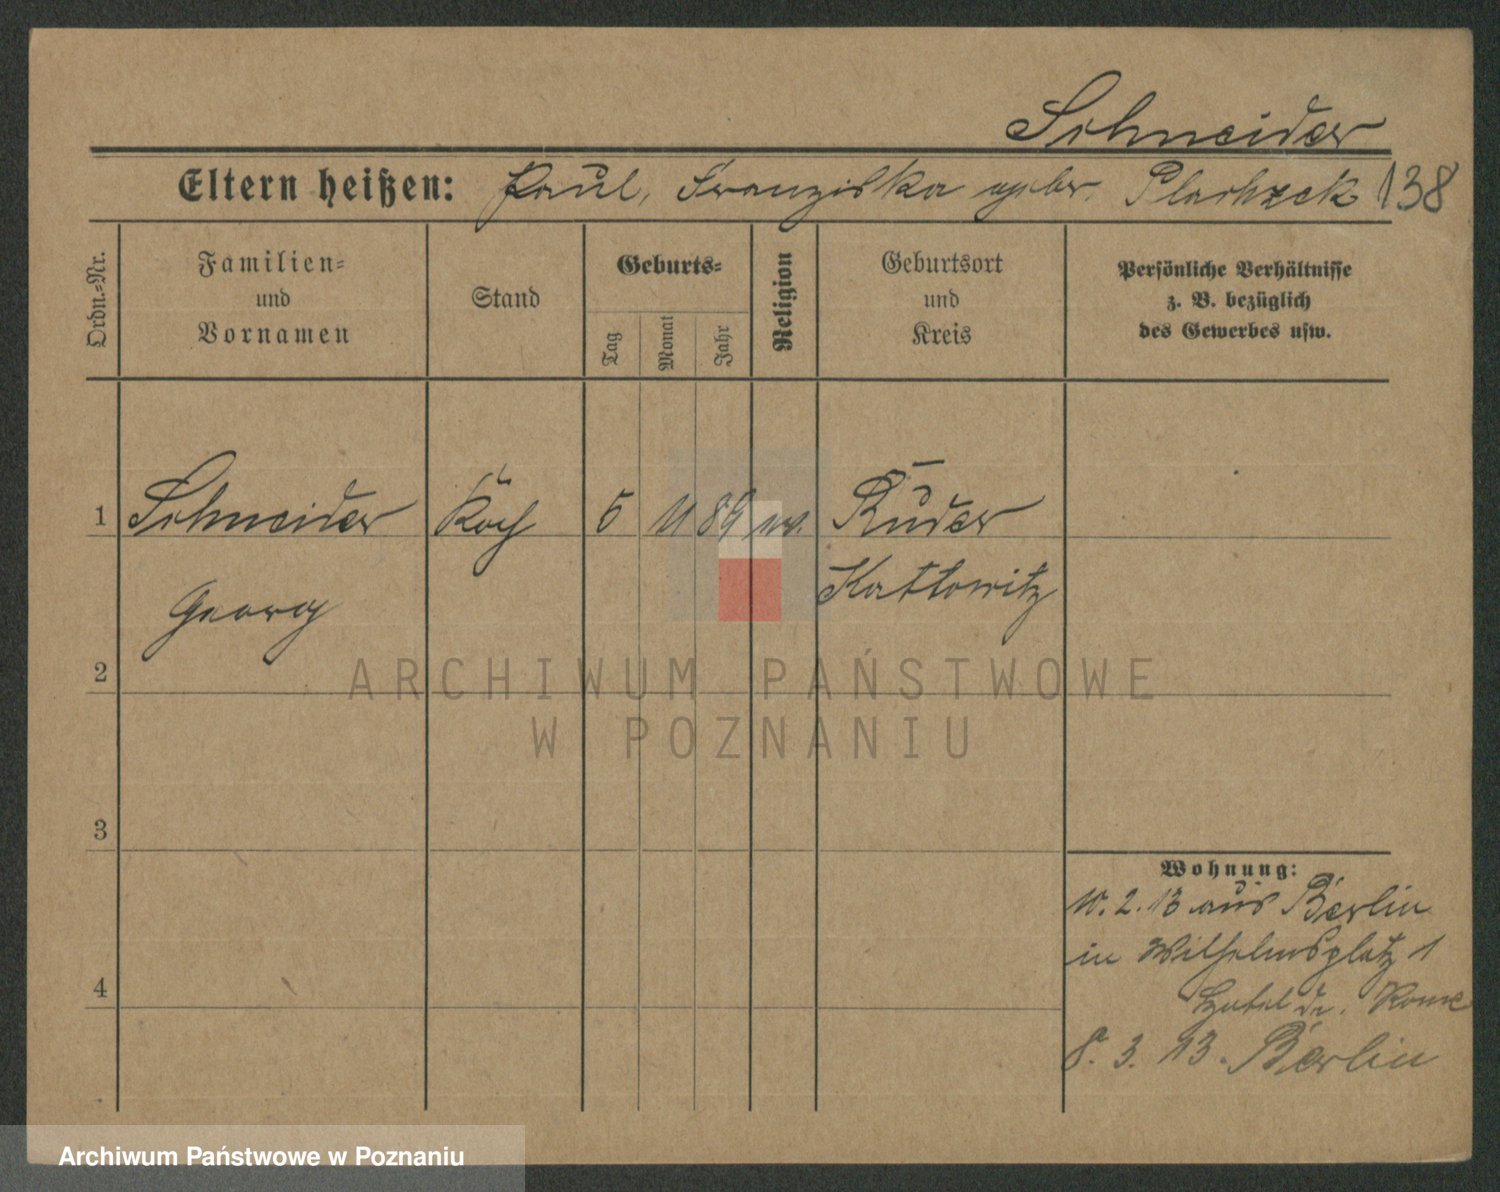 Schneider
Eltern heißen: Paul, Franziska geber. Plachzek 138
Ordn.-Nr.
Familien-
und
Vornamen
Stand
Geburts-
Tag
Monat
Jahr
Religion
Geburtsort
und
Kreis
Persönliche Verhältnisse
z. B. bezüglich
des Gewerbes usw.
1 Schneider Koch 5 11 89 ev.
Georg
Kattowitz
2
3
4
Wohnung:
10. 2. 13 aus Berlin
in Wilhelmsplatz 1
Hotel de. Rome
8. 3. 13. Berlin
ARCHIWUM PAŃSTWOWE
W POZNANIU
Archiwum Państwowe w Poznaniu